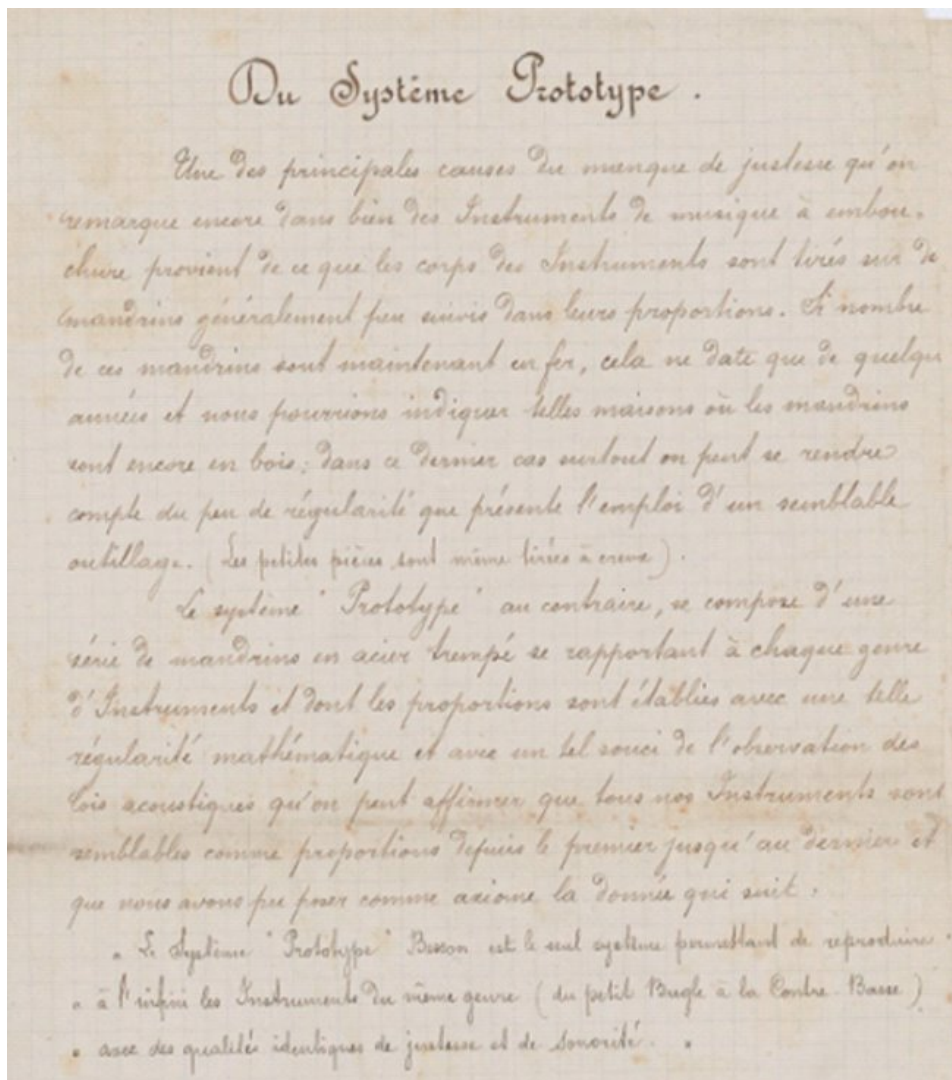 Du Système Prototype.
Une des principales causes du manque de justesse qu'on
remarque encore dans bien des Instruments de musique à embou-
chure provient de ce que les corps des Instruments sont tirés sur de
mandrins généralement peu suivis dans leurs proportions. Si nombre
de ces mandrins sont maintenant en fer, cela ne date que de quelqu
années et nous pourrions indiquer telles maisons où les mandrins
sont encore en bois; dans ce dernier cas surtout on peut se rendre
compte du peu de régularité que présente l'emploi d'un semblable
outillage. (Les petites pièces sont même tirées à creux).
Le système "Prototype" au contraire, se compose d'une
série de mandrins en acier trempé se rapportant à chaque genre
d'Instruments et dont les proportions sont établies avec une telle
régularité mathématique et avec un tel souci de l'observation des
lois acoustiques qu'on peut affirmer que tous nos Instruments sont
semblables comme proportions depuis le premier jusqu'au dernier et
que nous avons pu poser comme axiome la donnée qui suit:
" Le Système "Prototype" Besson est le seul système permettant de reproduire "
" à l'infini les Instruments du même genre (du petit Bugle à la Contre-Basse)
" avec des qualités identiques de justesse et de sonorité. "